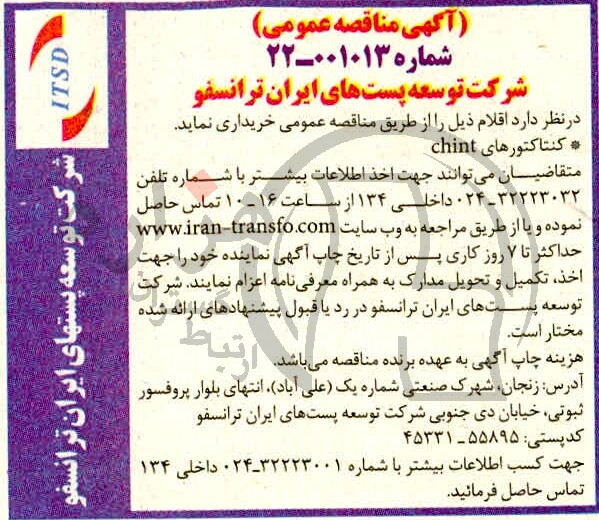 (آگهی مناقصه عمومی)
شماره ۰۰۱۰۱۳-۲۲
شرکت توسعه پست‌های ایران ترانسفو
درنظر دارد اقلام ذیل را از طریق مناقصه عمومی خریداری نماید.
* کنتاکتورهای chint
متقاضیان می‌توانند جهت اخذ اطلاعات بیشتر با شماره تلفن
۳۲۲۲۳۰۳۲-۰۲۴ داخلی ۱۳۴ از ساعت ۱۶-۱۰ تماس حاصل
نموده و یا از طریق مراجعه به وب سایت www.iran-transfo.com
حداکثر تا ۷ روز کاری پس از تاریخ چاپ آگهی نماینده خود را جهت
اخذ، تکمیل و تحویل مدارک به همراه معرفی‌نامه اعزام نمایند. شرکت
توسعه پست‌های ایران ترانسفو در رد یا قبول پیشنهادهای ارائه شده
مختار است.
هزینه چاپ آگهی به عهده برنده مناقصه می‌باشد.
آدرس: زنجان، شهرک صنعتی شماره یک (علی آباد)، انتهای بلوار پروفسور
ثبوتی، خیابان دی جنوبی شرکت توسعه پست‌های ایران ترانسفو
کدپستی: ۵۵۸۹۵ - ۴۵۳۳۱
جهت کسب اطلاعات بیشتر با شماره ۳۲۲۲۳۰۰۱-۰۲۴ داخلی ۱۳۴
تماس حاصل فرمائید.
ITSD
شرکت توسعه پستهای ایران ترانسفو
هزاره
ارتباط